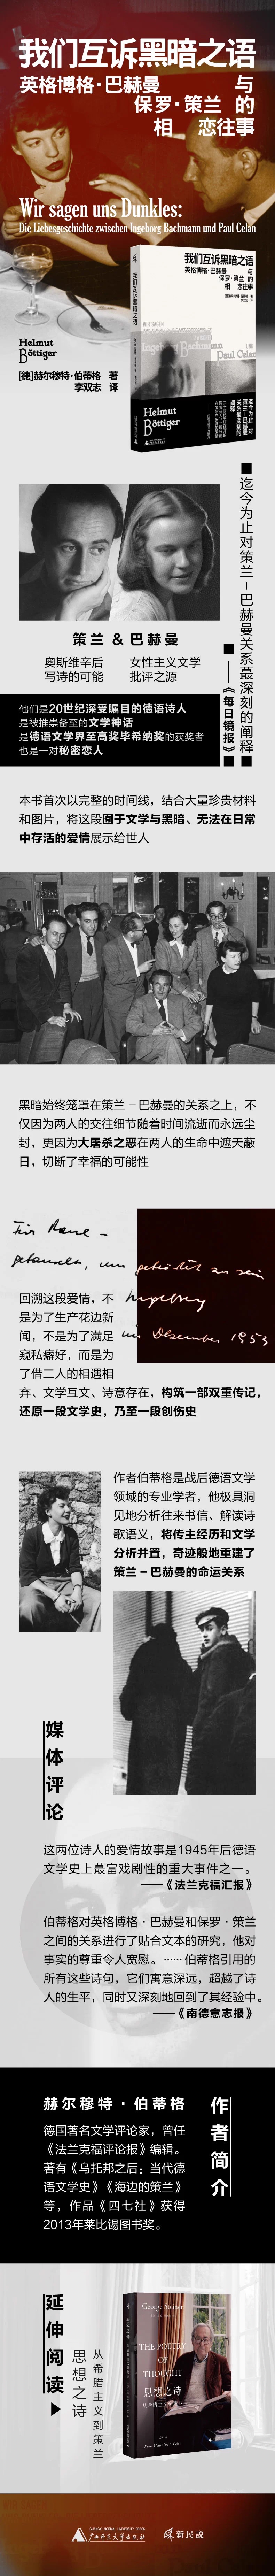 我们互诉黑暗之语
英格博格·巴赫曼 与
保罗·策兰 的
相 恋往事
Wir sagen uns Dunkles:
Die Liebesgeschichte zwischen Ingeborg Bachmann und Paul Celan
我们互诉黑暗之语
英格博格·巴赫曼 与
保罗·策兰 的
相 恋往事
我们互诉黑暗之语
WIR SAGEN
Ingeborg Bachmann
Paul Celan
Helmut
Böttiger
Helmut
Böttiger
[德]赫尔穆特·伯蒂格 著
李双志 译
迄今为止对策兰-巴赫曼关系最深刻的阐释
——《每日镜报》
策兰 & 巴赫曼
奥斯维辛后 女性主义文学
写诗的可能 批评之源
他们是20世纪深受瞩目的德语诗人
是被推崇备至的文学神话
是德语文学界至高奖毕希纳奖的获奖者
也是一对秘密恋人
本书首次以完整的时间线，结合大量珍贵材料
和图片，将这段囿于文学与黑暗、无法在日常
中存活的爱情展示给世人
黑暗始终笼罩在策兰-巴赫曼的关系之上，不
仅因为两人的交往细节随着时间流逝而永远尘
封，更因为大屠杀之恶在两人的生命中遮天蔽
日，切断了幸福的可能性
Ingeborg
im Dezember 1953
回溯这段爱情，不
是为了生产花边新
闻，不是为了满足
窥私癖好，而是为
了借二人的相遇相
弃、文学互文、诗意存在，构筑一部双重传记，
还原一段文学史，乃至一段创伤史
作者伯蒂格是战后德语文学
领域的专业学者，他极具洞
见地分析往来书信、解读诗
歌语义，将传主经历和文学
分析并置，奇迹般地重建了
策兰-巴赫曼的命运关系
媒体评论
这两位诗人的爱情故事是1945年后德语
文学史上蕞富戏剧性的重大事件之一。
——《法兰克福汇报》
伯蒂格对英格博格·巴赫曼和保罗·策兰
之间的关系进行了贴合文本的研究，他对
事实的尊重令人宽慰。……伯蒂格引用的
所有这些诗句，它们寓意深远，超越了诗
人的生平，同时又深刻地回到了其经验中。
——《南德意志报》
赫尔穆特·伯蒂格
作者简介
德国著名文学评论家，曾任
《法兰克福评论报》编辑。
著有《乌托邦之后：当代德
语文学史》《海边的策兰》
等，作品《四七社》获得
2013年莱比锡图书奖。
延伸阅读
思想之诗
从希腊主义到策兰
George Steiner
THE POETRY
OF
THOUGHT
思想之诗
从希腊主义到策兰
From Hellenism to Celan
GUANGXI NORMAL UNIVERSITY PRESS
广西师范大学出版社
新民说